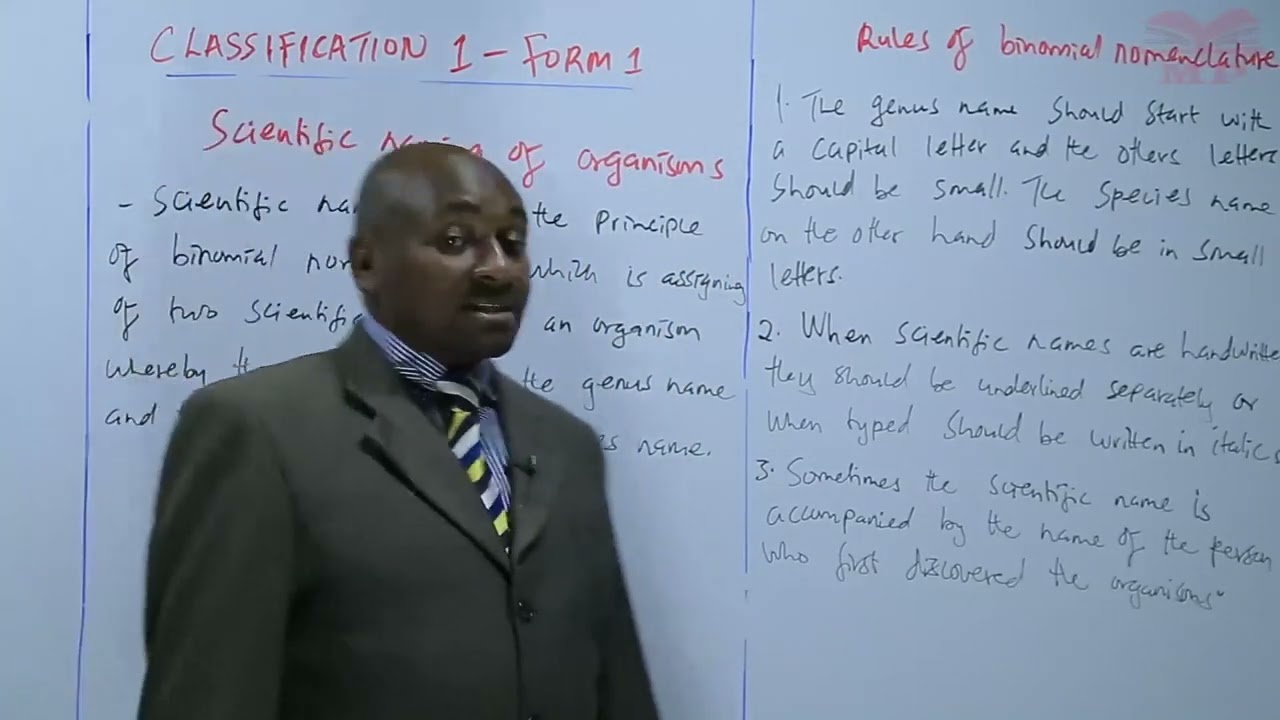 CLASSIFICATION 1 - FORM 1
Scientific of organisms
- Scientific the principle
of binomial which is assigning
of two an organism
whereby the genus name
and name.
Rules of binomial nomenclature
1. The genus name should start with
a capital letter and the others letters
should be small. The species name
on the other hand should be in small
letters.
2. When scientific names are handwritte
they should be underlined separately or
when typed should be written in italics
3. Sometimes the scientific name is
accompanied by the name of the person
who first discovered the organisms"